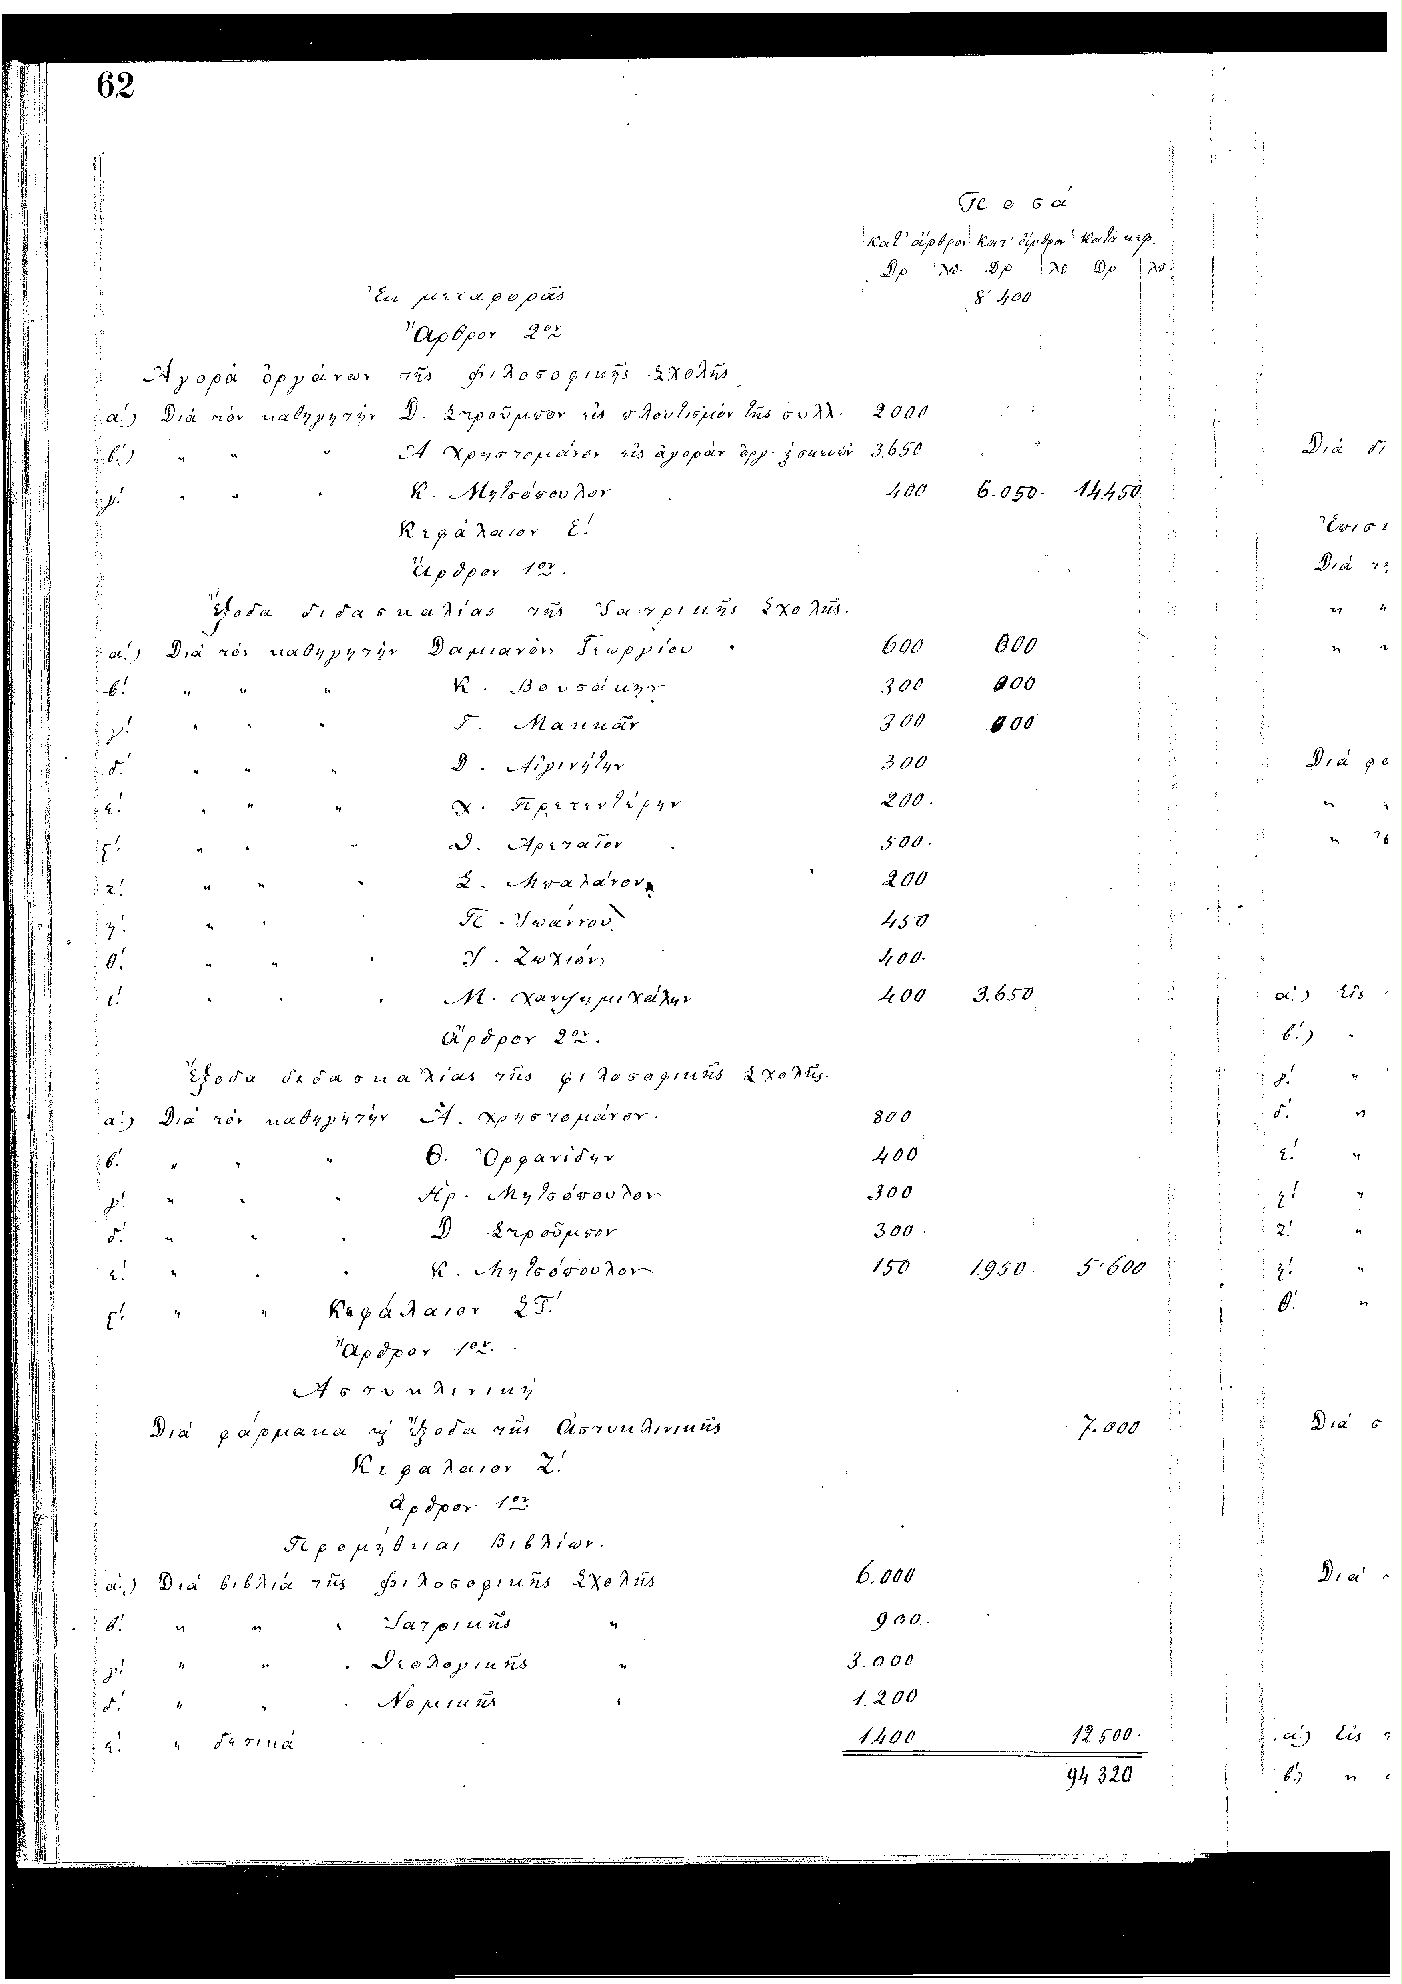 62
Ποσά
κατ' άρθρον κατ' άρθρον κατά κεφ.
Δρ λε. Δρ λε Δρ λε
Ἐκ μεταφορᾶς 8'400
Ἄρθρον 2ον
Ἀγορά ὀργάνων τῆς φιλοσοφικῆς Σχολῆς
α') Διά τόν καθηγητήν Δ. Στροῦμπον εἰς πλουτισμόν τῆς συλλ. 2000
β') " " " Α Χρηστομάνον εἰς ἀγοράν ὀργ. ἐ σκευών 3.650
γ'. " " " Κ. Μητσόπουλον 400 6.050. 14.450
Κεφάλαιον Ε'.
Ἄρθρον 1ον.
Ἔξοδα διδασκαλίας τῆς Ἰατρικῆς Σχολῆς.
α') Διά τόν καθηγητήν Δαμιανόν Γεωργίου . 600 600
β'. " " " Κ. Βουσάκην 300 300
γ'. " " " Γ. Μακκᾶν 300 300
δ'. " " " Δ. Αἰγινήτην 300
ε'. " " " Χ. Πρετεντέρην 200.
ς'. " " " Θ. Αρεταῖον 500.
ζ'. " " " Σ. Μπαλάνον 200
η'. " " Π. Ἰωάννου 450
θ'. " " " Ι. Ζωχιόν 400.
ι'. " " " Μ. Χαντζημιχάλην 400 3.650
Ἄρθρον 2ον.
Ἔξοδα διδασκαλίας τῆς φιλοσοφικῆς Σχολῆς.
α') Διά τόν καθηγητήν Α. Χρηστομάνον. 800
β'. " " " Θ. Ὀρφανίδην 400
γ'. " " " Ηρ. Μητσόπουλον 300
δ'. " " " Δ Στροῦμπον 300.
ε'. " " " Κ. Μητσόπουλον 150 1950. 5.600
ς'. " " Κεφάλαιον ΣΤ'.
Ἄρθρον 1ον.
Αστυκλινική
Διά φάρμακα ἤ ἔξοδα τῆς Αστυκλινικῆς 7.000
Κεφαλαιον Ζ'.
Αρθρον 1ον
Προμήθειαι Βιβλίων.
α') Διά βιβλιά τῆς Φιλοσοφικῆς Σχολῆς 6.000
β'. " " " Ἰατρικῆς " 900.
γ'. " " " Θεολογικῆς " 3.000
δ'. " " " Νομικῆς " 1.200
ε'. " δετικά 1400 12500.
94320